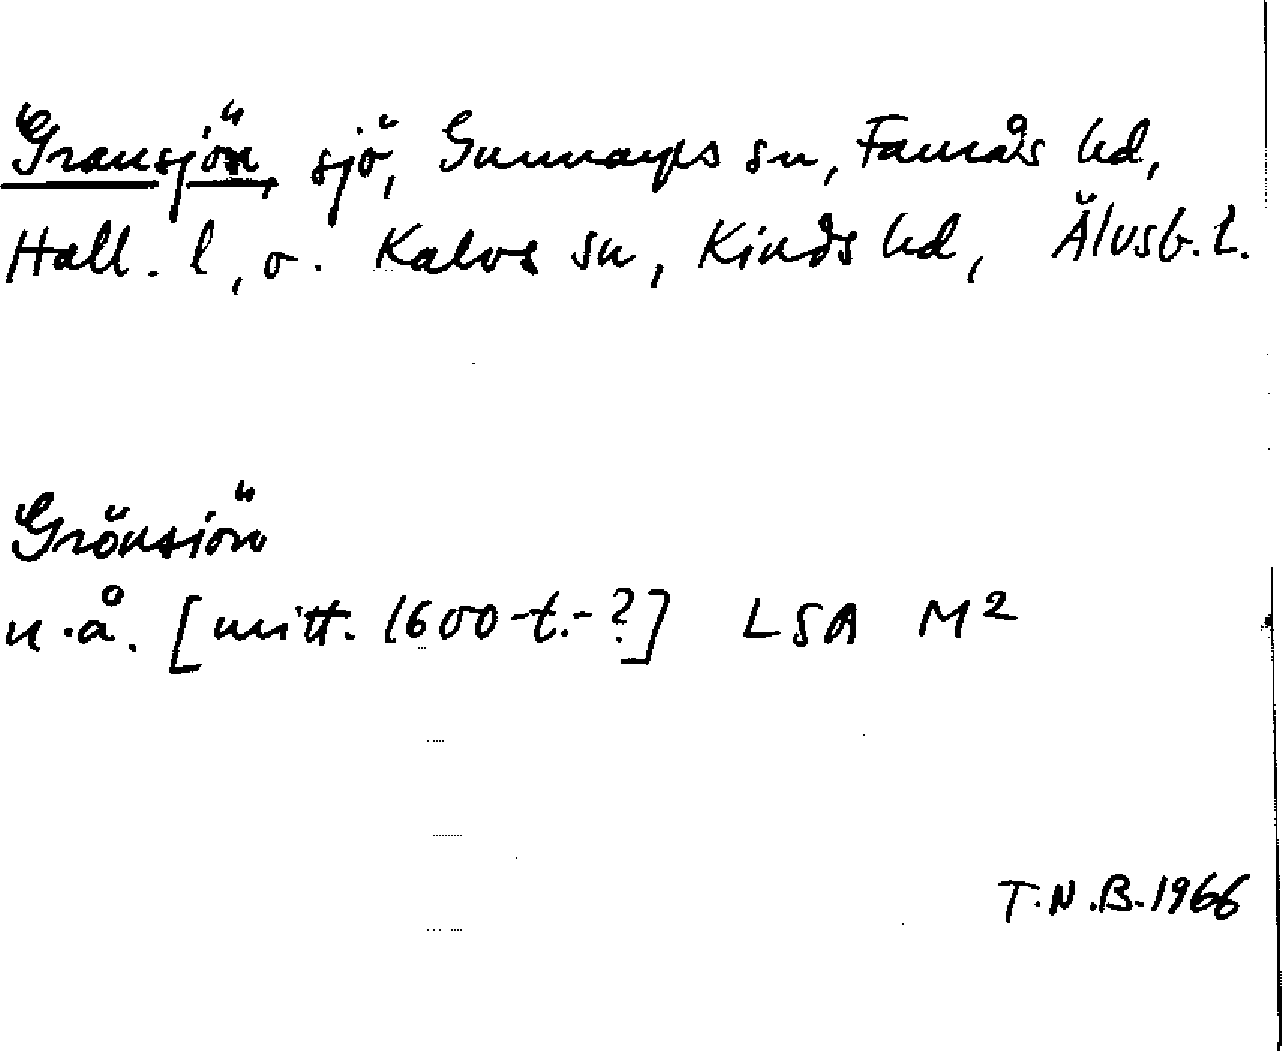 "Gransjön", sjö, Gunnarps sn, Faurås hd,
Hall. l, o. Kalvs sn, Kinds hd, Älvsb. l.
"Grönsiön"
n.å. [mitt. 1600-t.-?] LSA M2
T.N.B. 1966